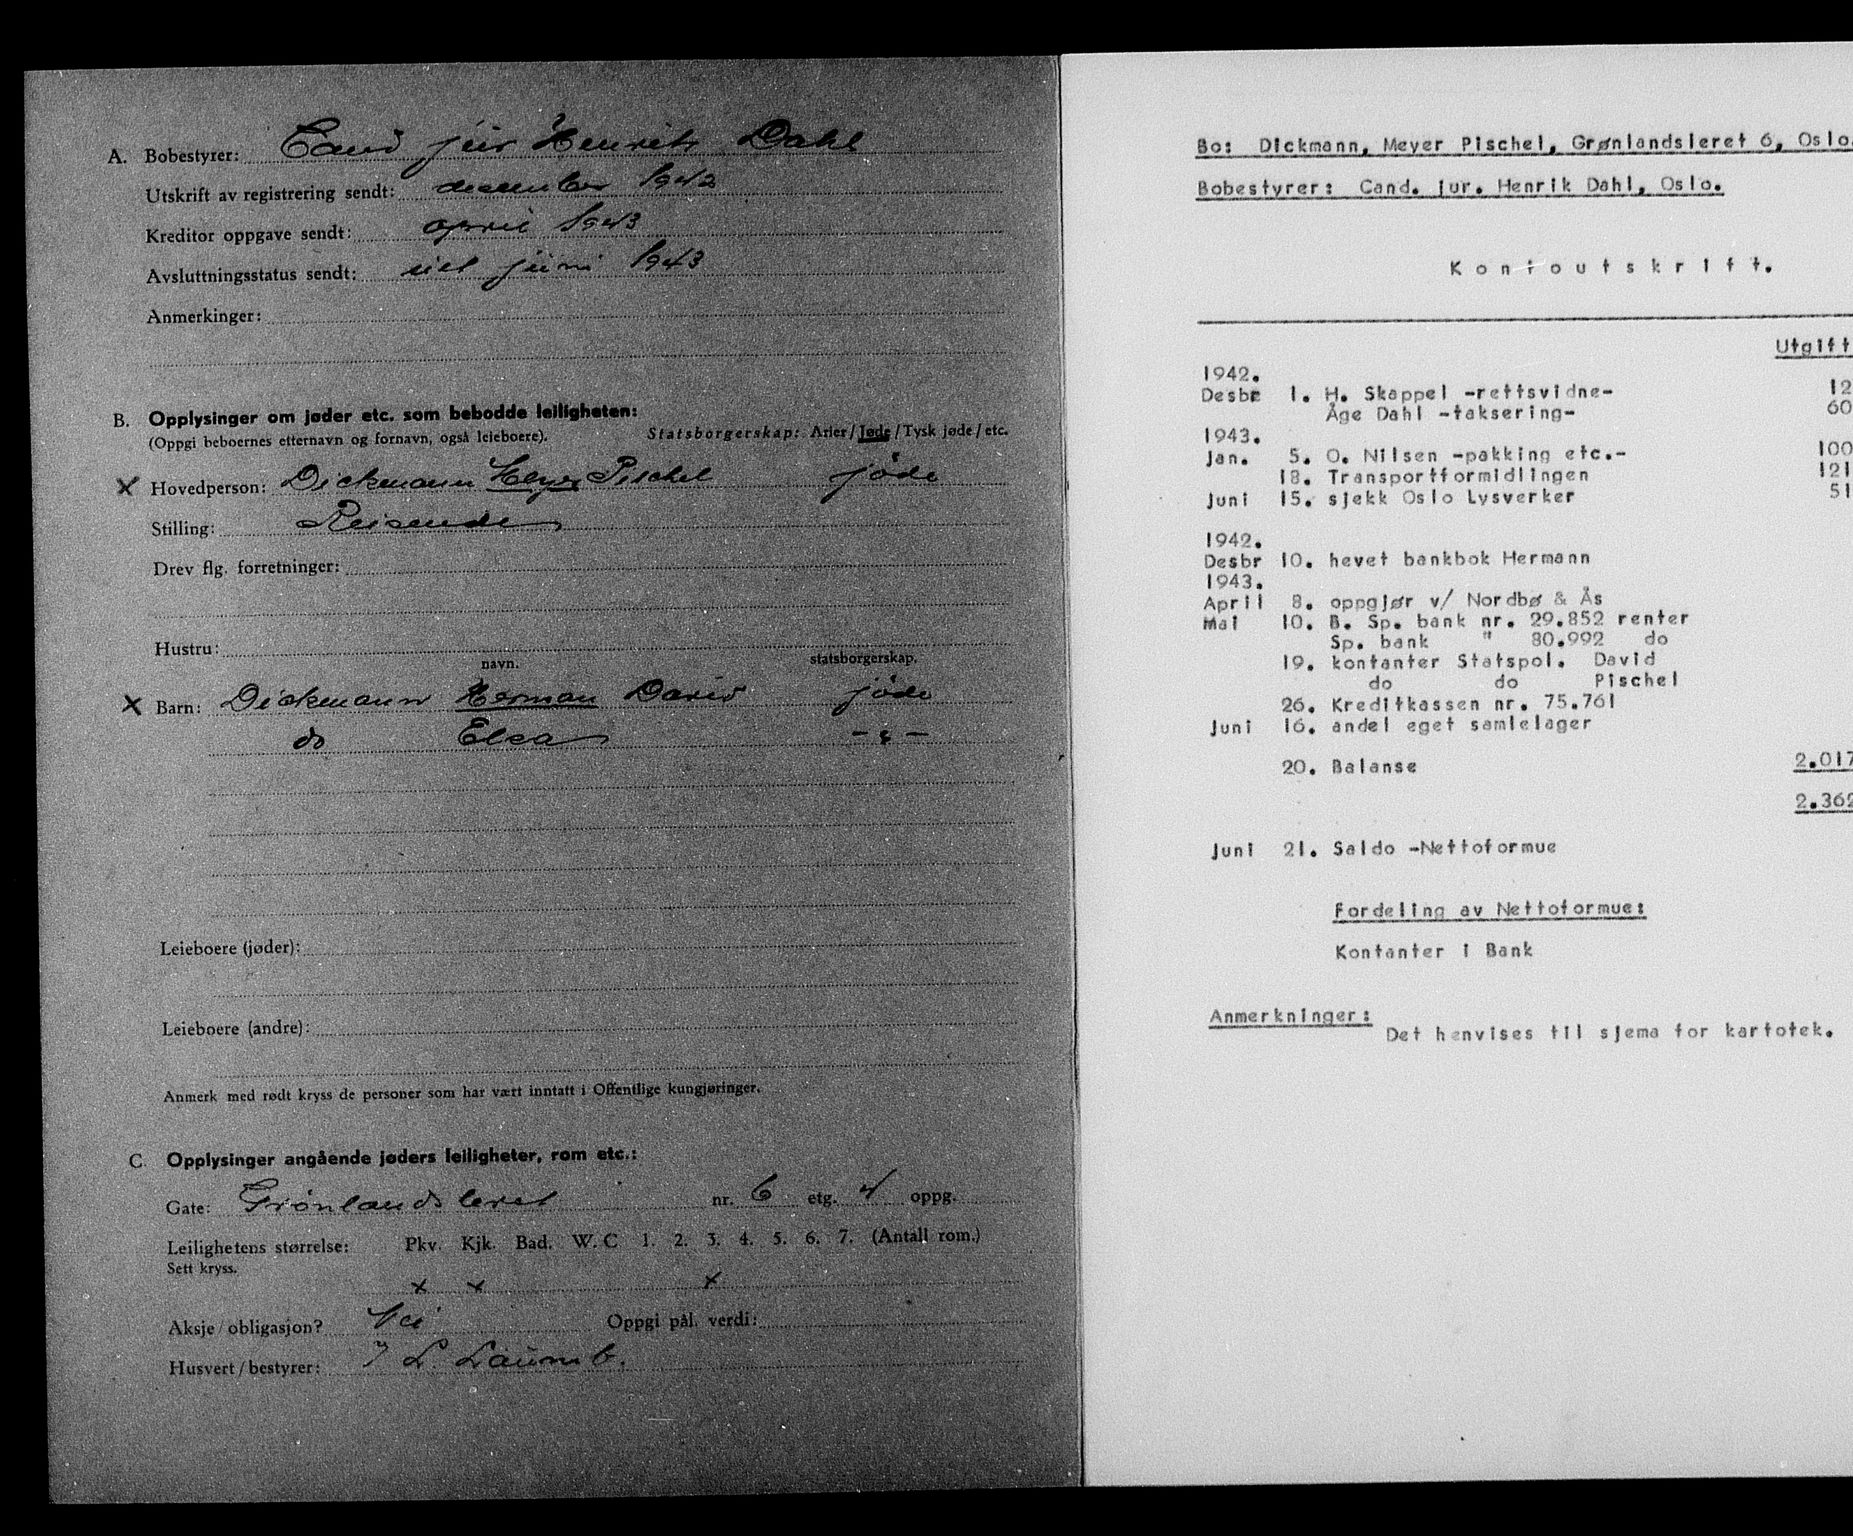 A. Bobestyrer: Cand jur Henrik Dahl
Utskrift av registrering sendt: desember 1942
Kreditor oppgave sendt: april 1943
Avsluttningsstatus sendt: juni 1943
Anmerkinger:
B. Opplysinger om jøder etc. som bebodde leiligheten:
(Oppgi beboernes etternavn og fornavn, også leieboere). Statsborgerskap: Arier/Jøde/Tysk jøde/etc.
x Hovedperson: Dickmann Meyer Pischel jøde
Stilling: Reisende
Drev flg. forretninger:
Hustru:
navn. statsborgerskap.
x Barn: Dickmann Herman David jøde
do Elsa - " -
Leieboere (jøder):
Leieboere (andre):
Anmerk med rødt kryss de personer som har vært inntatt i Offentlige kungjøringer.
C. Opplysinger angående jøders leiligheter, rom etc.:
Gate: Grønlandsleret nr. 6 etg. 4 oppg.
Leilighetens størrelse: Pkv. Kjk. Bad. W.C 1. 2. 3. 4. 5. 6. 7. (Antall rom.)
Sett kryss.
x x x
Aksje/obligasjon? Nei Oppgi pål. verdi:
Husvert/bestyrer: L.
Bo: Dickmann, Meyer Pischel, Grønlandsleret 6, Oslo.
Bobestyrer: Cand. jur. Henrik Dahl, Oslo.
Kontoutskrift.
Utgift
1942.
Desbr 1. H. Skappel -rettsvidne- 12
Åge Dahl -taksering- 60
1943.
Jan. 5. O. Nilsen -pakking etc.- 100
18. Transportformidlingen 121
Juni 15. sjekk Oslo Lysverker 51
1942.
Desbr 10. hevet bankbok Hermann
1943.
April 8. oppgjør v/ Nordbø & Ås
Mai 10. B. Sp. bank nr. 29.852 renter
Sp. bank " 80.992 do
19. kontanter Statspol. David
do do Pischel
26. Kreditkassen nr. 75.761
Juni 16. andel eget samlelager
20. Balanse 2.017
2.362
Juni 21. Saldo -Nettoformue
Fordeling av Nettoformue:
Kontanter i Bank
Anmerkninger:
Det henvises til sjema for kartotek.